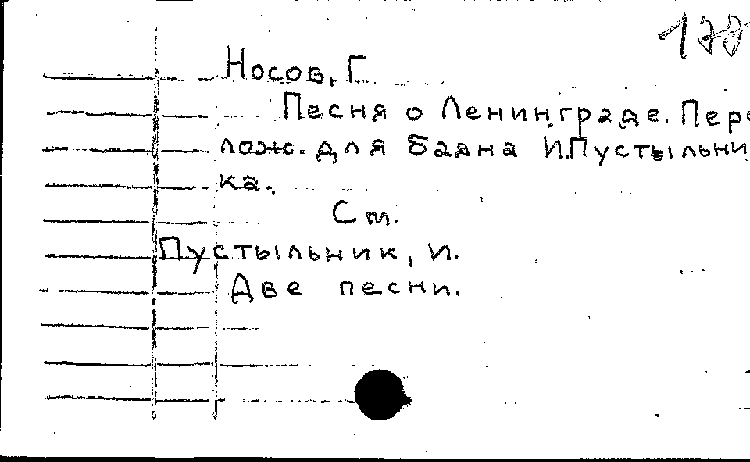 Носов, Г.
Песня о Ленинграде. Пере
лож. для баяна И.Пустыльни
ка.
См.
Пустыльник, И.
Две песни.